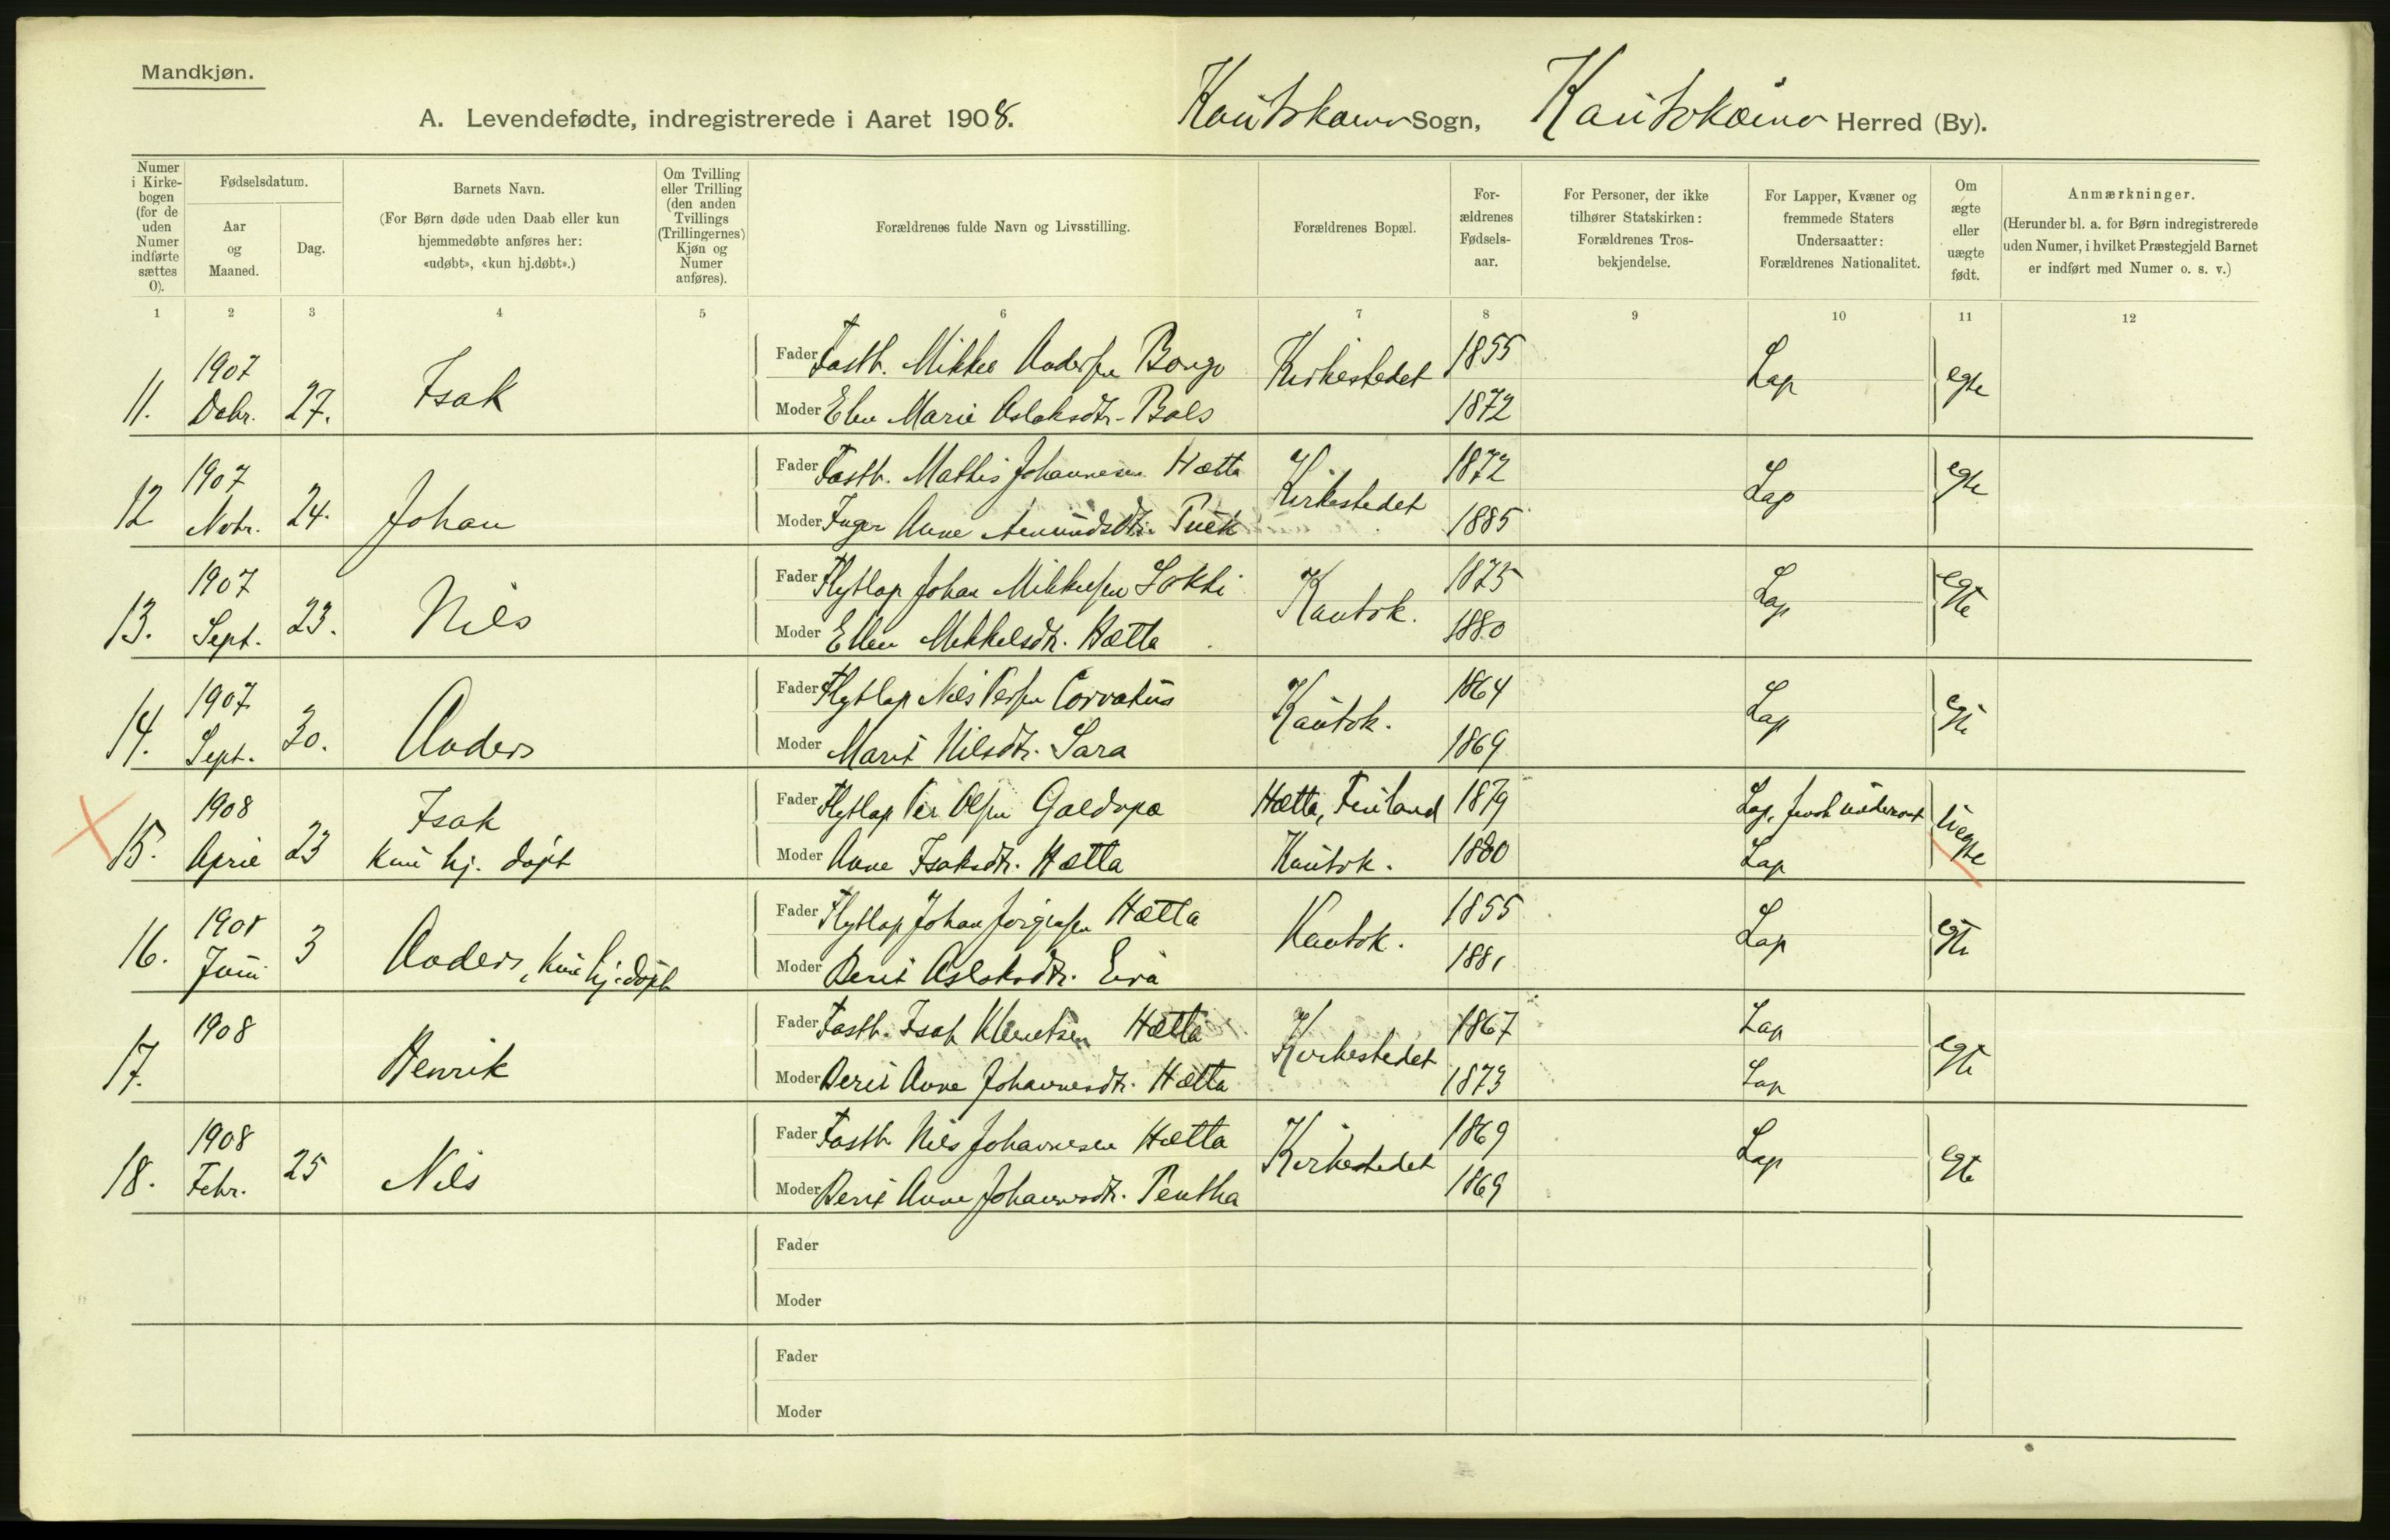 Mandkjøn.
A. Levendefødte, indregistrerede i Aaret 1908. Kautokeino Sogn, Kautokeino Herred (By).
Numer i Kirkebogen (for de uden Numer indførte sættes 0).
Fødselsdatum.
Aar og Maaned.
Dag.
Barnets Navn.
(For Børn døde uden Daab eller kun hjemmedøbte anføres her: «udøbt», «kun hj.døbt».)
Om Tvilling eller Trilling (den anden Tvillings (Trillingernes) Kjøn og Numer anføres).
Forældrenes fulde Navn og Livsstilling.
Forældrenes Bopæl.
Forældrenes Fødselsaar.
For Personer, der ikke tilhører Statskirken: Forældrenes Trosbekjendelse.
For Lapper, Kvæner og fremmede Staters Undersaatter: Forældrenes Nationalitet.
Om ægte eller uægte født.
Anmærkninger.
(Herunder bl. a. for Børn indregistrerede uden Numer, i hvilket Præstegjeld Barnet er indført med Numer o. s. v.)
1 2 3 4 5 6 7 8 9 10 11 12
11. 1907 Dcbr. 27. Isak Fader Fastb. Mikkel Andersen Bongo Kirkestedet 1855 Lap egte
Moder Elen Marie Aslaksdtr. Bals 1872
12 1907 Novbr. 24. Johan Fader Fastb. Mathis Johannesen Hætta Kirkestedet 1872 Lap egte
Moder Inger Anne Amundsdtr. 1885
13. 1907 Sept. 23. Nils Fader Flytlap Johan Mikkelsen Sokki Kautok. 1875 Lap egte
Moder Ellen Mikkelsdtr. Hætta 1880
14. 1907 Sept. 30. Anders Fader Flytlap Nils Persen Corvatus Kautok. 1864 Lap egte
Moder Marit Nilsdtr. Sara 1869
15. 1908 April 23 Isak Fader Flytlap Per Olsen Galdopa Hætta, Finland 1879 Lap, uegte
kun hj. døpt Moder Anne Isaksdtr. Hætta Kautok. 1880 Lap
16. 1908 Juni 3 Anders, kun hj. døpt Fader Flytlap Johan Jørgensen Hætta Kautok. 1855 Lap egte
Moder Berit Aslaksdtr. Eira 1881
17. 1908 Henrik Fader Fastb. Isak Klemetsen Hætta Kirkestedet 1867 Lap egte
Moder Berit Anne Johannesdtr. Hætta 1873 Lap
18. 1908 Febr. 25 Nils Fader Fastb. Nils Johannesen Hætta Kirkestedet 1869 Lap egte
Moder Berit Anne Johannesdtr. Pentha 1869
Fader
Moder
Fader
Moder